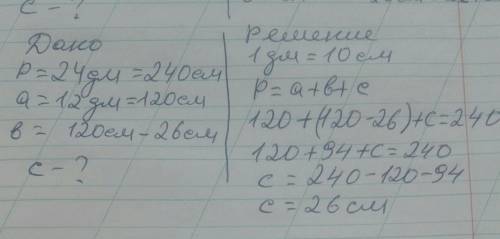 с - ?
Дано
P = 24дм = 240см
a = 12дм = 120см
в = 120см - 26см
с - ?
Решение
1дм = 10см
P = a + в + с
120 + (120 - 26) + с = 240
120 + 94 + с = 240
с = 240 - 120 - 94
с = 26см